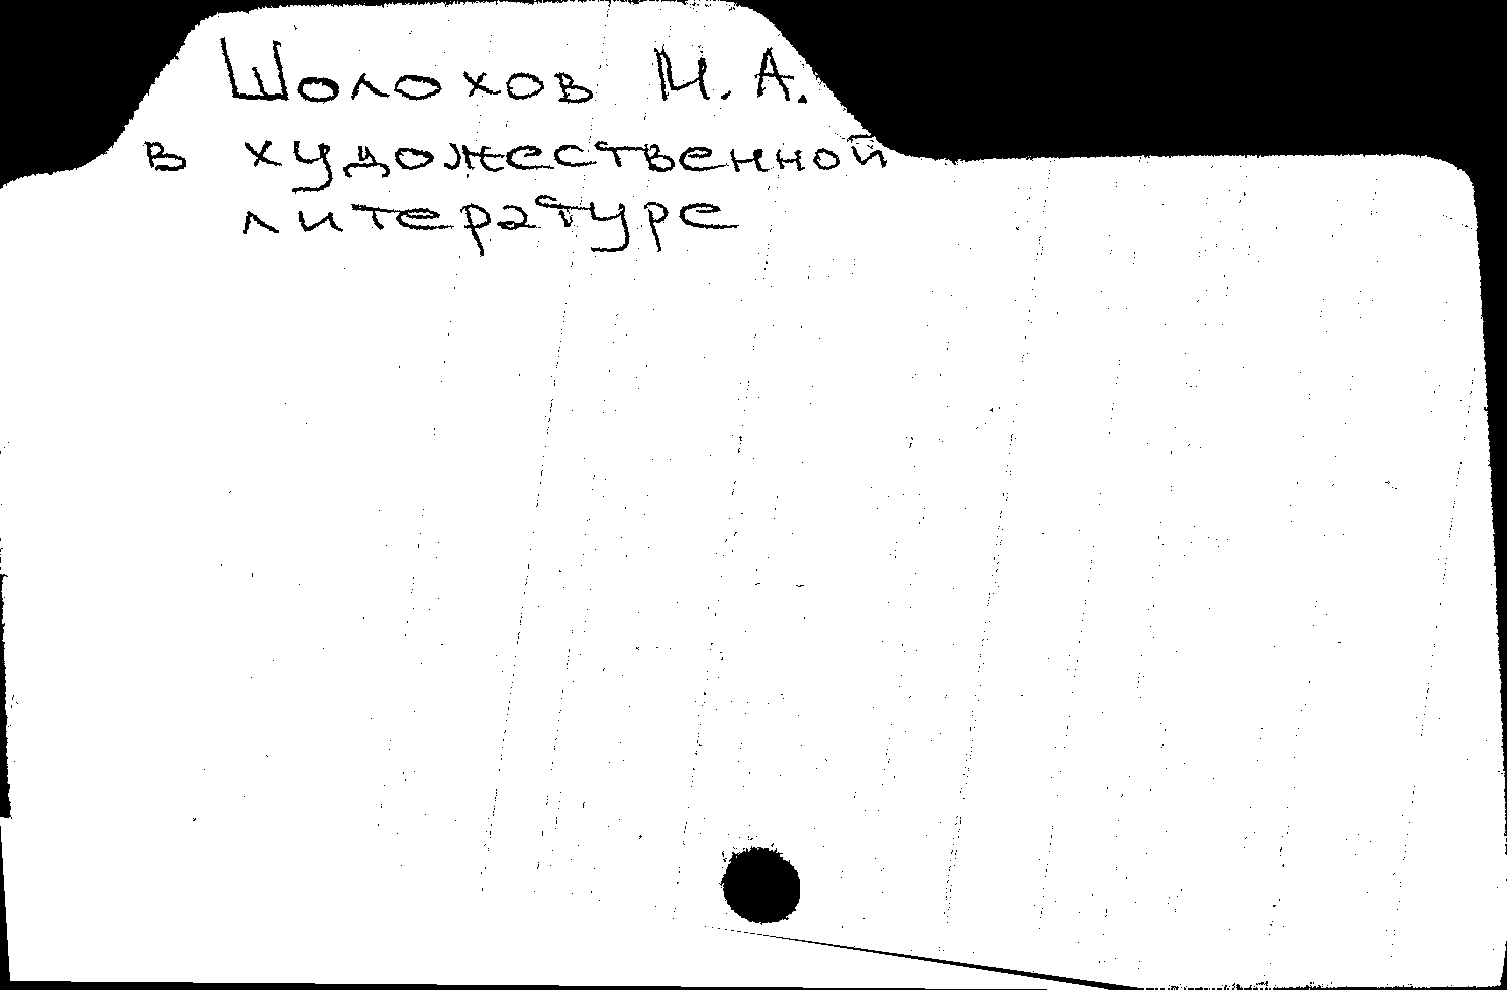 Шолохов М. А.
в художественной
литературе